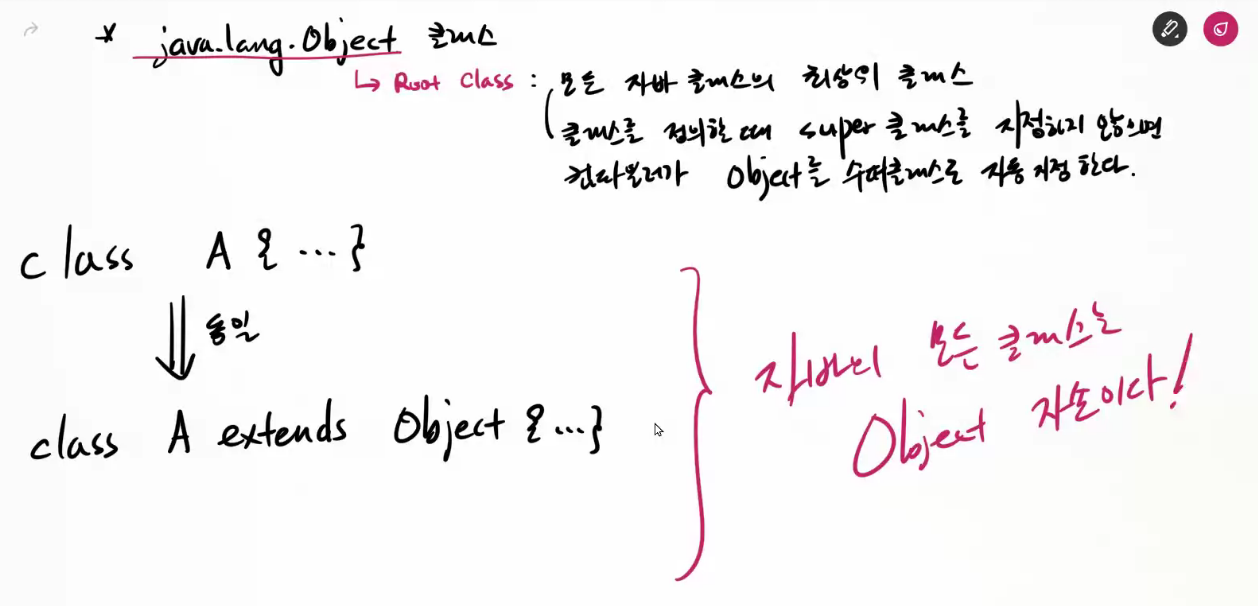 * java.lang.Object 클래스
↳ Root Class : 모든 자바 클래스의 최상위 클래스
클래스를 정의할 때 super 클래스를 지정하지 않으면
컴파일러가 Object를 수퍼클래스로 자동 지정한다.
class A { ... }
⇓ 동일
class A extends Object { ... }
자바의 모든 클래스는
Object 자손이다!